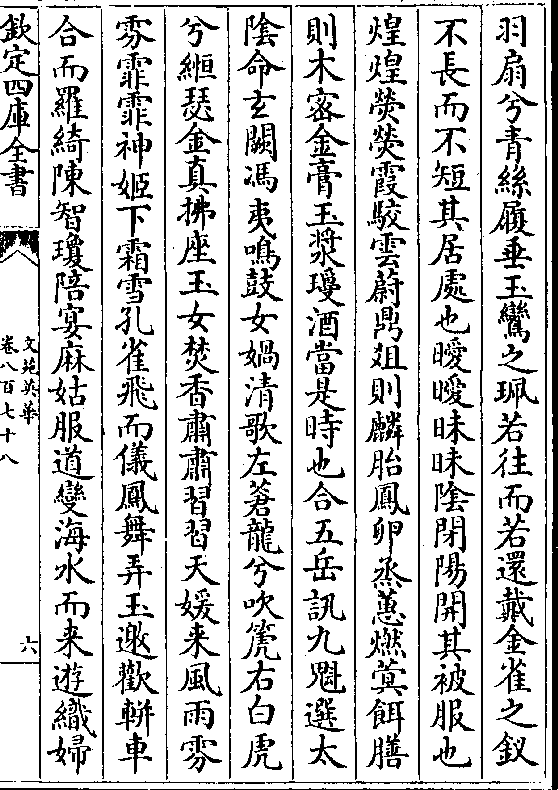 羽扇兮青絲履垂玉鸞之珮若往而若還戴金雀之釵
不長而不短其居處也曖曖昧昧陰閉陽開其被服也
煌煌熒熒霞駮雲蔚鼎俎則麟胎鳳卵蒸蕙燃蓂餌膳
則木宻金膏玉漿瓊酒當是時也合五岳訊九魁選太
陰命玄闕馮夷鳴鼓女媧清歌左蒼龍兮吹篪右白虎
兮縆瑟金真拂座玉女焚香肅肅習習天媛来風雨雰
雰霏霏神姬下霜雪孔雀飛而儀鳳舞弄玉邀歡輧車
合而羅綺陳智瓊陪宴麻姑服道變海水而来遊織婦
欽定四庫全書
文苑英華
卷八百七十八
六